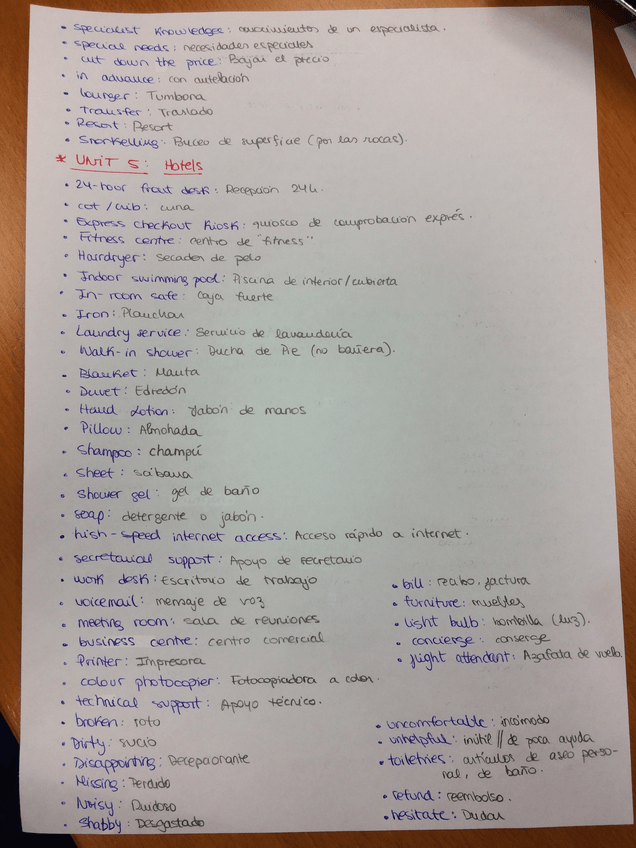 • Specialist Knowledge: conocimientos de un especialista.
• special needs: necesidades especiales
• cut down the price: Bajar el precio
• in advance: con antelación
• Lounger: Tumbona
• Transfer: Traslado
• Resort: Resort
• Snorkelling: Buceo de superficie (por las rocas).
* UNIT 5: Hotels
• 24-hour front desk: Recepción 24h.
• cot / crib: cuna
• Express checkout Kiosk: quiosco de comprobación exprés.
• Fitness centre: centro de "fitness"
• Hairdryer: Secador de pelo
• Indoor swimming pool: Piscina de interior/cubierta
• In-room safe: Caja fuerte
• Iron: Planchar
• Laundry service: Servicio de lavandería
• Walk-in shower: Ducha de Pie (no bañera).
• Blanket: Manta
• Duvet: Edredón
• Hand Lotion: Jabón de manos
• Pillow: Almohada
• Shampoo: champú
• Sheet: sábana
• Shower gel: gel de baño
• soap: detergente o jabón.
• high-speed internet access: Acceso rápido a internet.
• secretarial support: Apoyo de secretario
• work desk: Escritorio de trabajo
• voicemail: mensaje de voz
• meeting room: sala de reuniones
• business centre: centro comercial
• Printer: Impresora
• colour photocopier: Fotocopiadora a color.
• technical support: Apoyo técnico.
• broken: roto
• Dirty: sucio
• Disappointing: Decepcionante
• Missing: Perdido
• Noisy: Ruidoso
• Shabby: Desgastado
• bill: recibo, factura
• furniture: muebles
• Light bulb: bombilla (luz).
• concierge: conserge
• flight attendant: Azafata de vuelo.
• uncomfortable: incómodo
• unhelpful: inútil // de poca ayuda
• toiletries: artículos de aseo perso-
nal, de baño.
• refund: reembolso.
• hesitate: Dudar